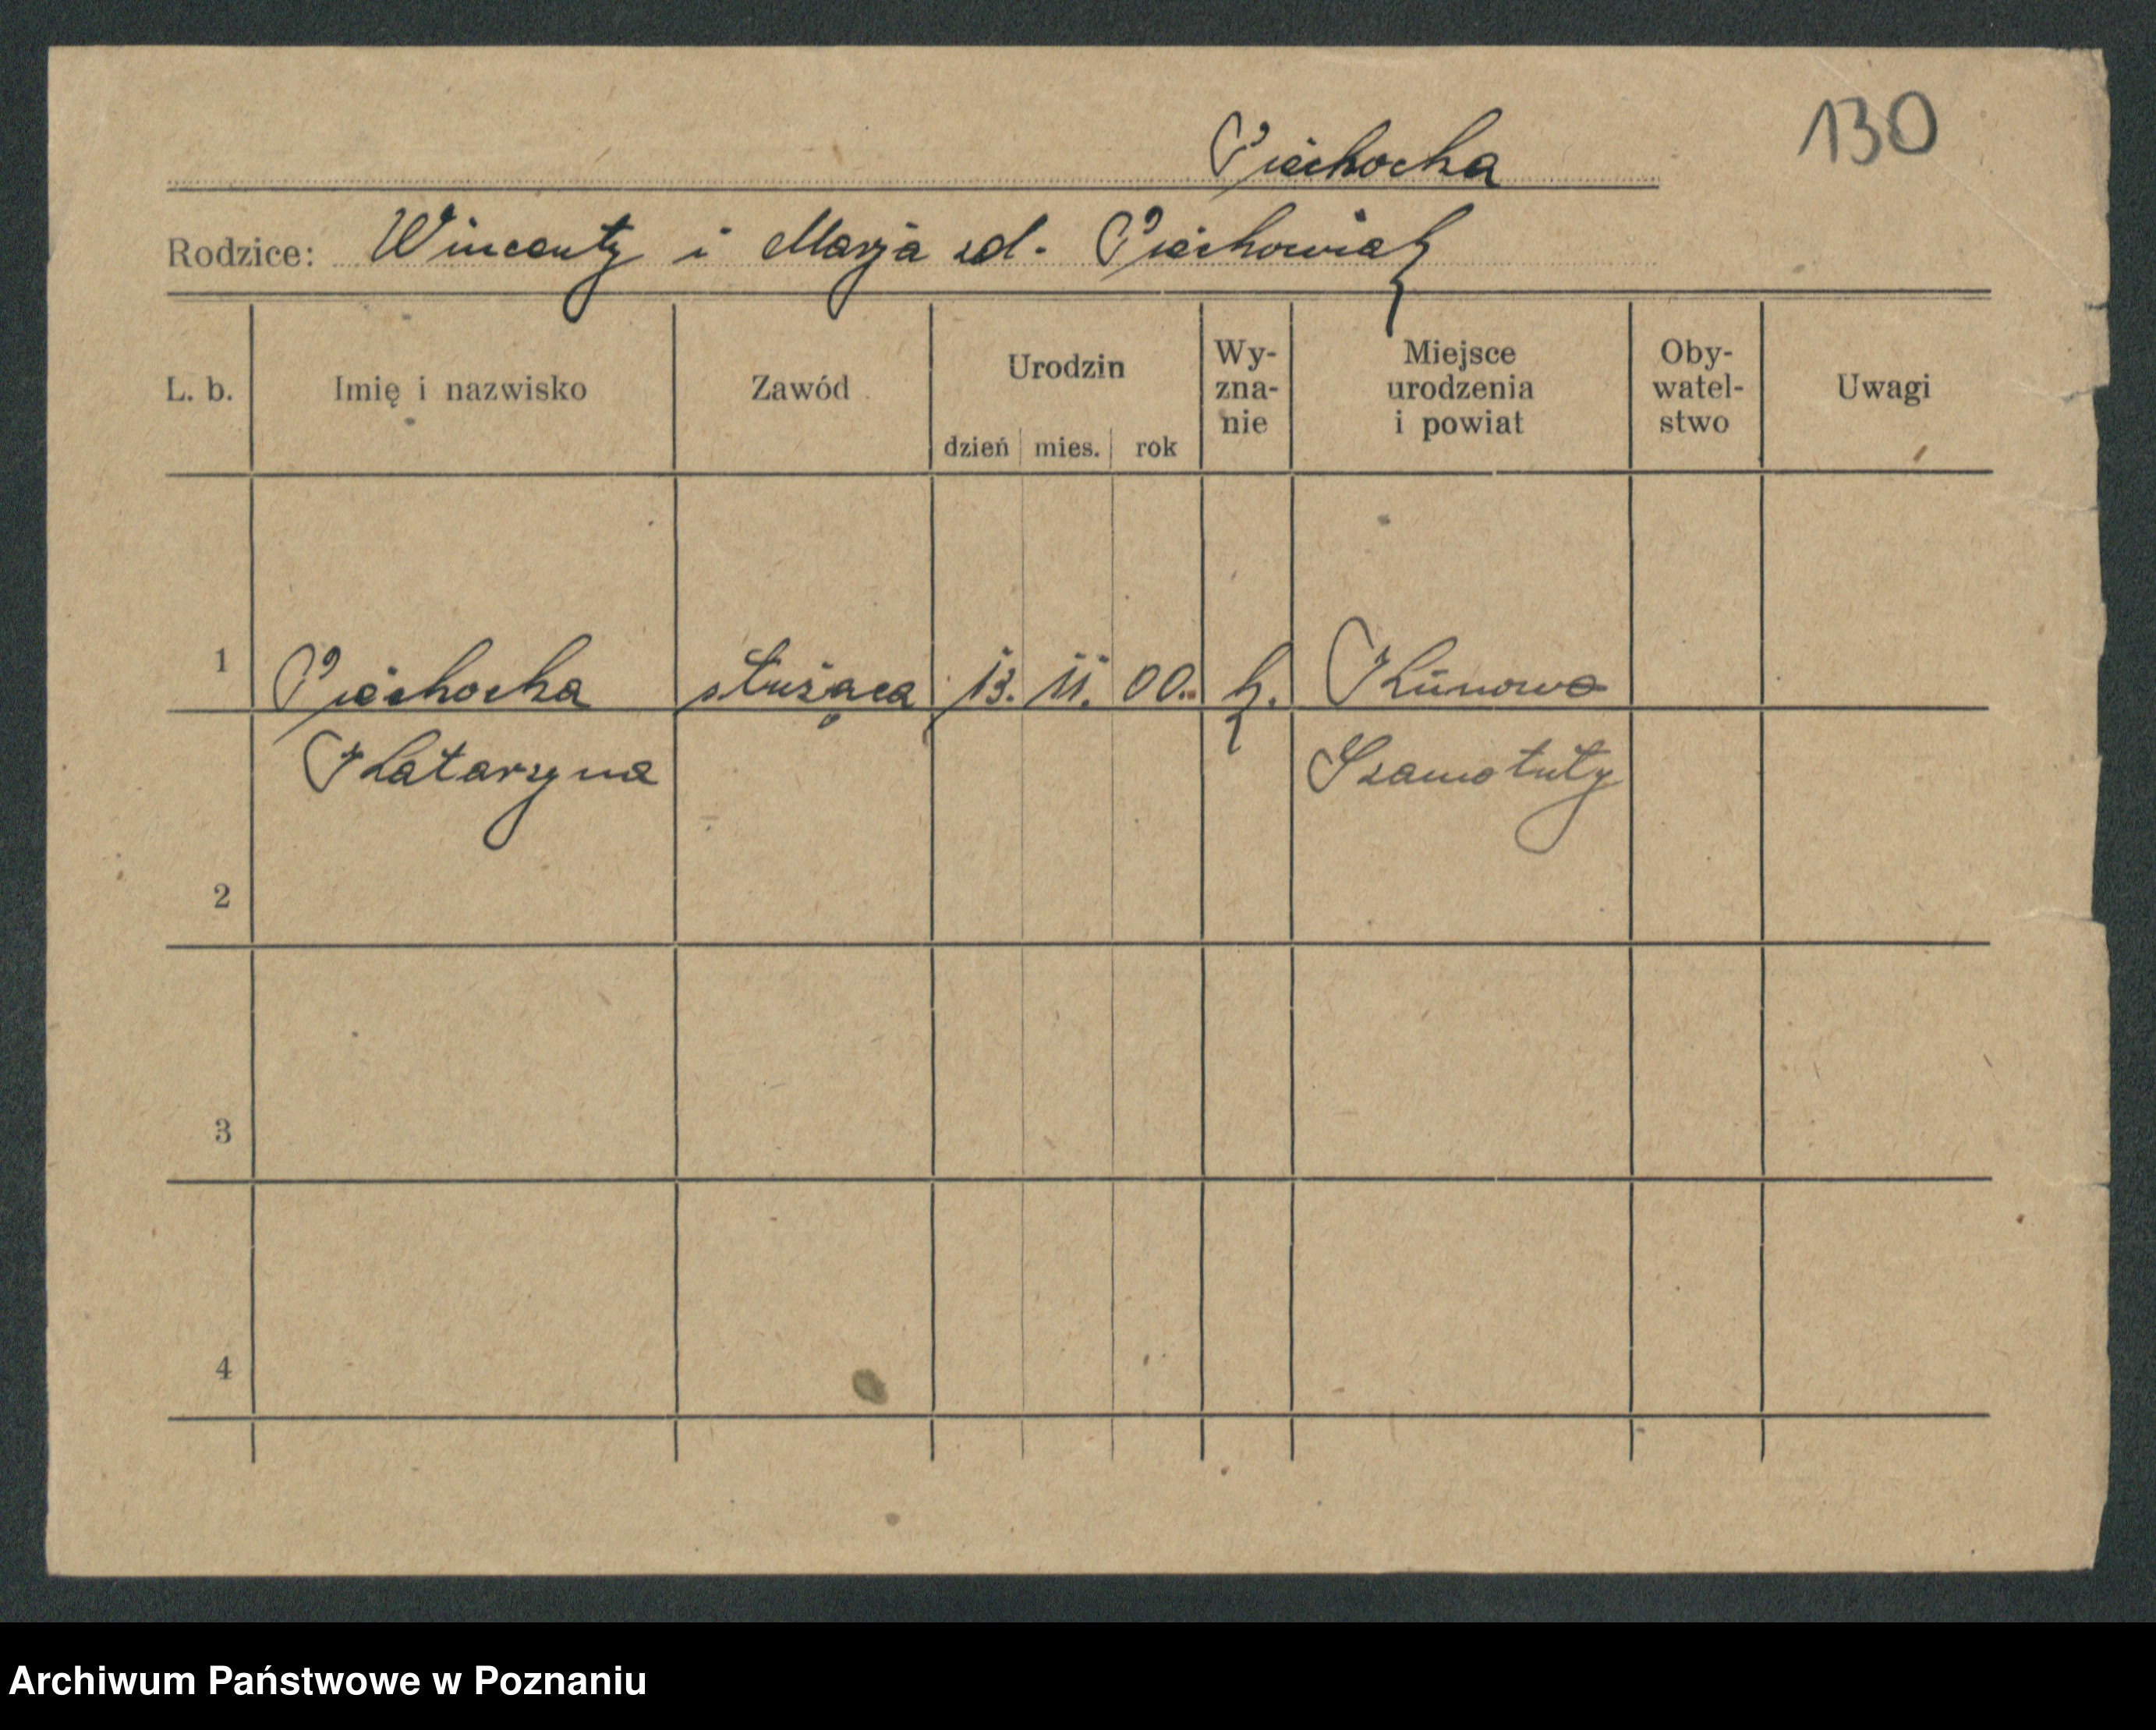 130
Piechocka
Rodzice: Wincenty i Marja zd. Piechowiak
L. b. Imię i nazwisko Zawód Urodzin dzień mies. rok Wy-zna-nie Miejsce urodzenia i powiat Oby-watel-stwo Uwagi
1 Piechocka służąca 13. 11. 00. k. Kunowo
Katarzyna Szamotuły
2
3
4
Archiwum Państwowe w Poznaniu